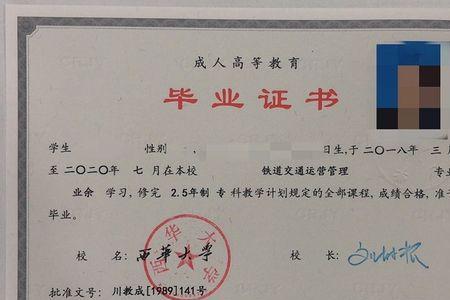 成人高等教育
毕业证书
学生 性别, 日生,于二〇一八年 三月
至二〇二〇年 七月在本校 铁道交通运营管理 专业
业余 学习, 修完 2.5年制 专科教学计划规定的全部课程, 成绩合格, 准予
毕业。
校 名: 西华大学 校 长:
西华大学
批准文号: 川教成[1989]141号